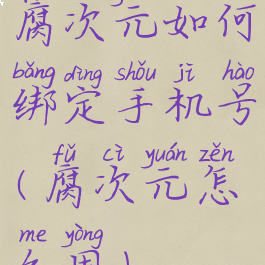 腐次元如何
bǎng dìng shǒu jī hào
绑定手机号
fǔ cì yuán zěn
(腐次元怎
me yòng